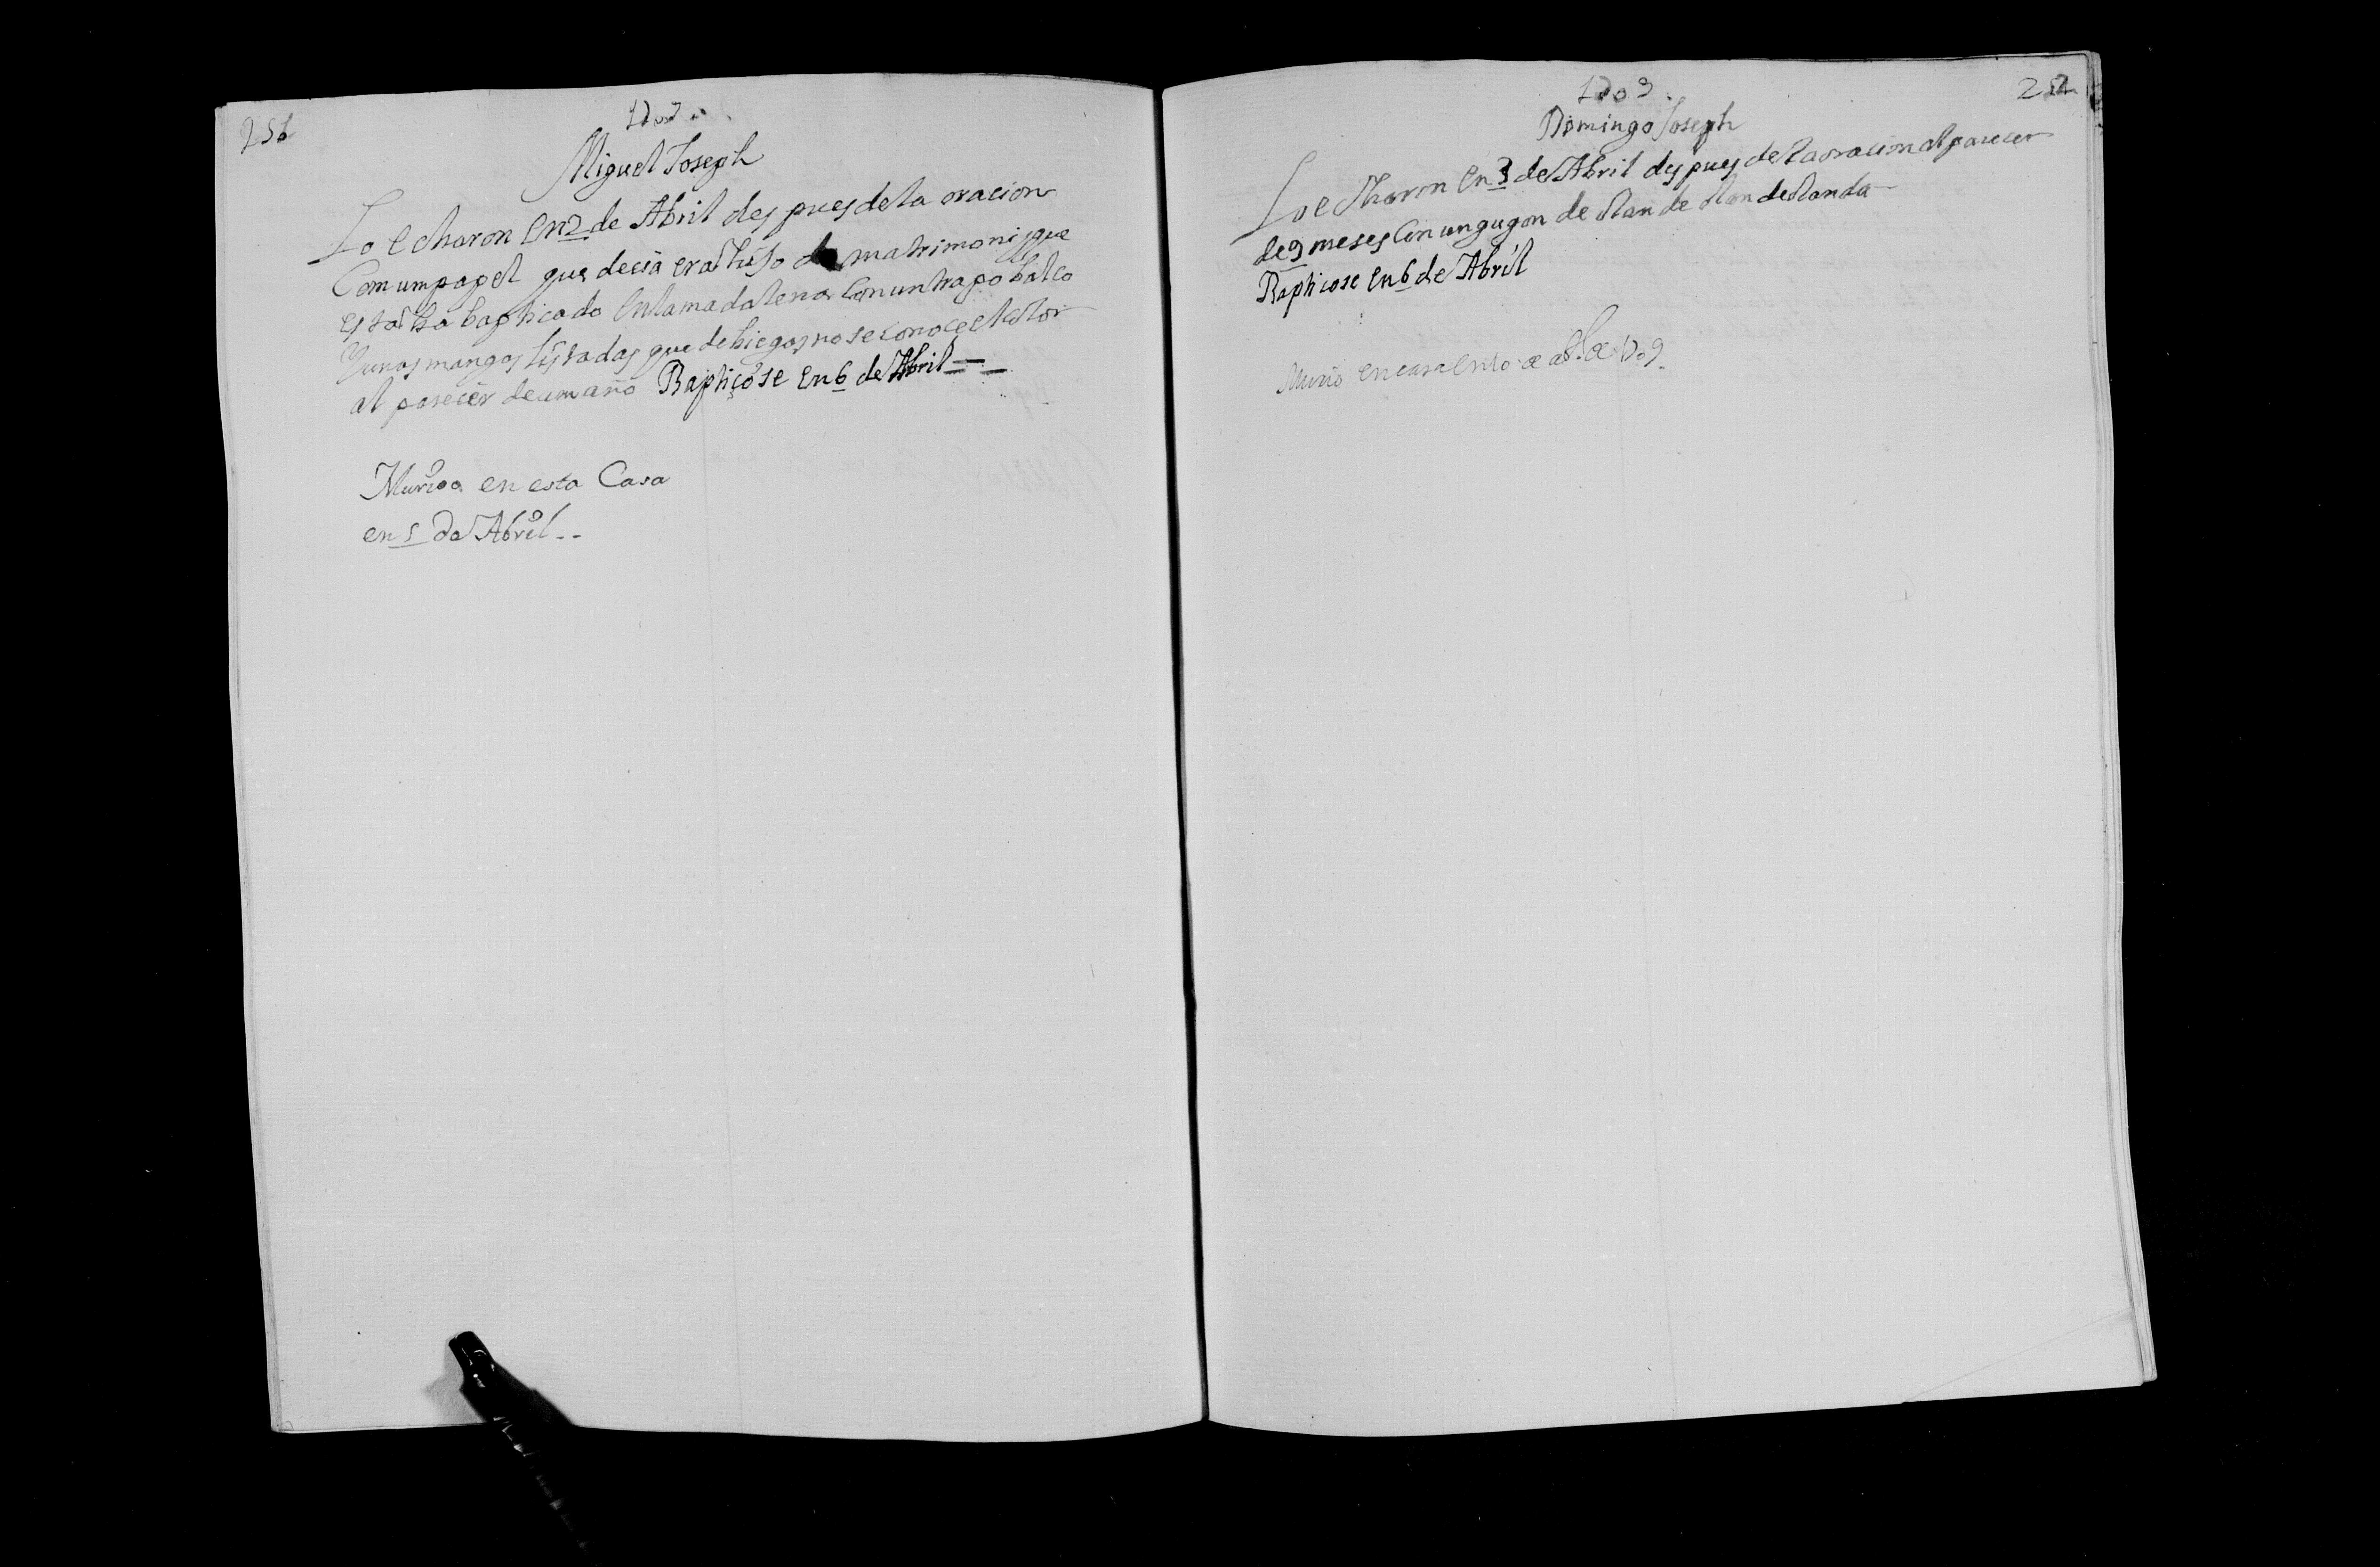 256
1709
Miguel Joseph
Lo echaron en 2 de Abril despues de la oracion
Con un papel que decia era hijo de matrimonio y que
estaba baptiçado en la madalena Con un trapo balco
Y unas mangas listadas que de biegas no se conoce el color
al parecer de un año Baptiçose en 6 de Abril
Murio en esta Casa
en 5 de Abril --
1709
Domingo Joseph
Lo echaron en 3 de Abril despues de la oracion al parecer
de 9 meses Con un gugon de
Baptiçose en 6 de Abril
Murio en casa en 10 de ab.l de 1709